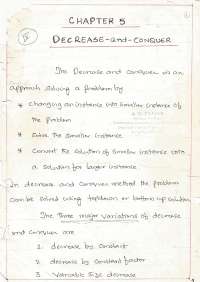 CHAPTER 5
DECREASE-and-CONQUER
The Decrease and conquer is an
approach solving a problem by
* changing an instance into smaller instance of
the problem
* Solve the smaller instance
* Convert the solution of smaller instance into
a solution for larger instance
In decrease and conquer method the problem
can be solved using topdown or bottom up solution
The three major variations of decrease
and conquer are
1. decrease by Constant
2. decrease by Constant factor
3. Variable size decrease